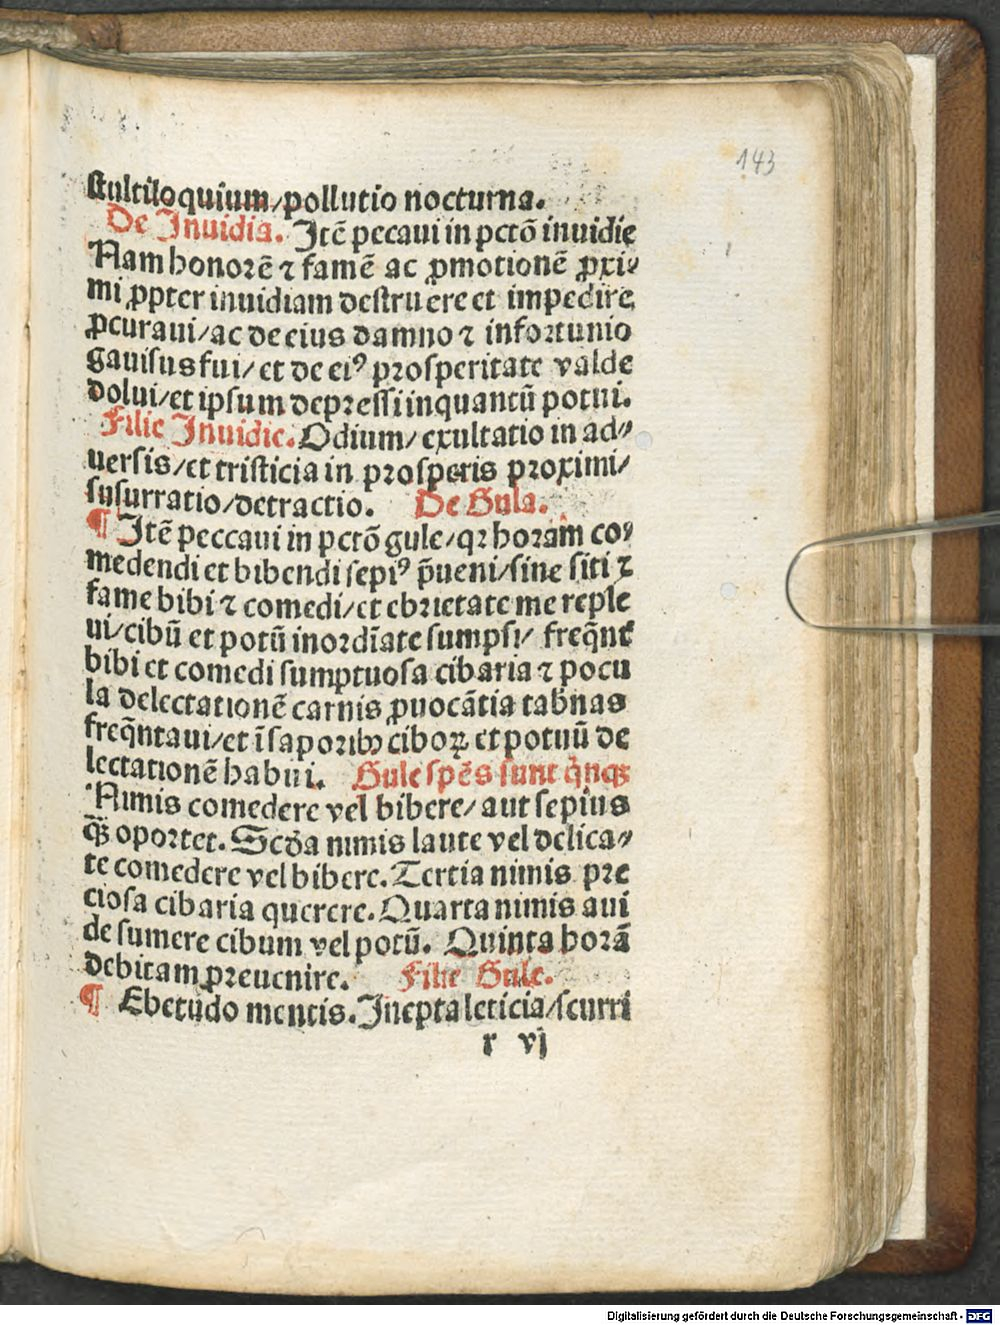 143
stultiloquium/pollutio nocturna.
De Inuidia. Itē pecaui in pctō inuidie
Nam honorē ⁊ famē ac ꝓmotionē ꝓxi⸗
mi ꝓpter inuidiam destruere et impedire
ꝓcuraui/ac de eius damno ⁊ infortunio
gauisus fui/et de eiꝰ prosperitate valde
dolui/et ipsum depressi inquantū potui.
Filie Inuidie. Odium/exultatio in ad⸗
uersis/et tristicia in prosperis proximi/
susurratio/detractio. De Gula.
¶ Itē peccaui in pctō gule/qꝛ horam co⸗
medendi et bibendi sepiꝰ p̄ueni/sine siti ⁊
fame bibi ⁊ comedi/et ebrietate me reple
ui/cibū et potū inordīate sumpsi/ freq̄nt̄
bibi et comedi sumptuosa cibaria ⁊ pocu
la delectationē carnis ꝓuocātia tab̄nas
freq̄ntaui/et ī saporibꝫ ciboꝝ et potuū de
lectationē habui. Gule spēs sunt q̇nqꝫ
Nimis comedere vel bibere/aut sepius
qꝫ̄ oportet. Scd̄a nimis laute vel delica⸗
te comedere vel bibere. Tertia nimis pre
ciosa cibaria querere. Quarta nimis aui
de sumere cibum vel potū. Quinta horā
debitam preuenire. Filie Gule.
¶ Ebetudo mentis. Inepta leticia/scurri
r vj
Digitalisierung gefördert durch die Deutsche Forschungsgemeinschaft - DFG